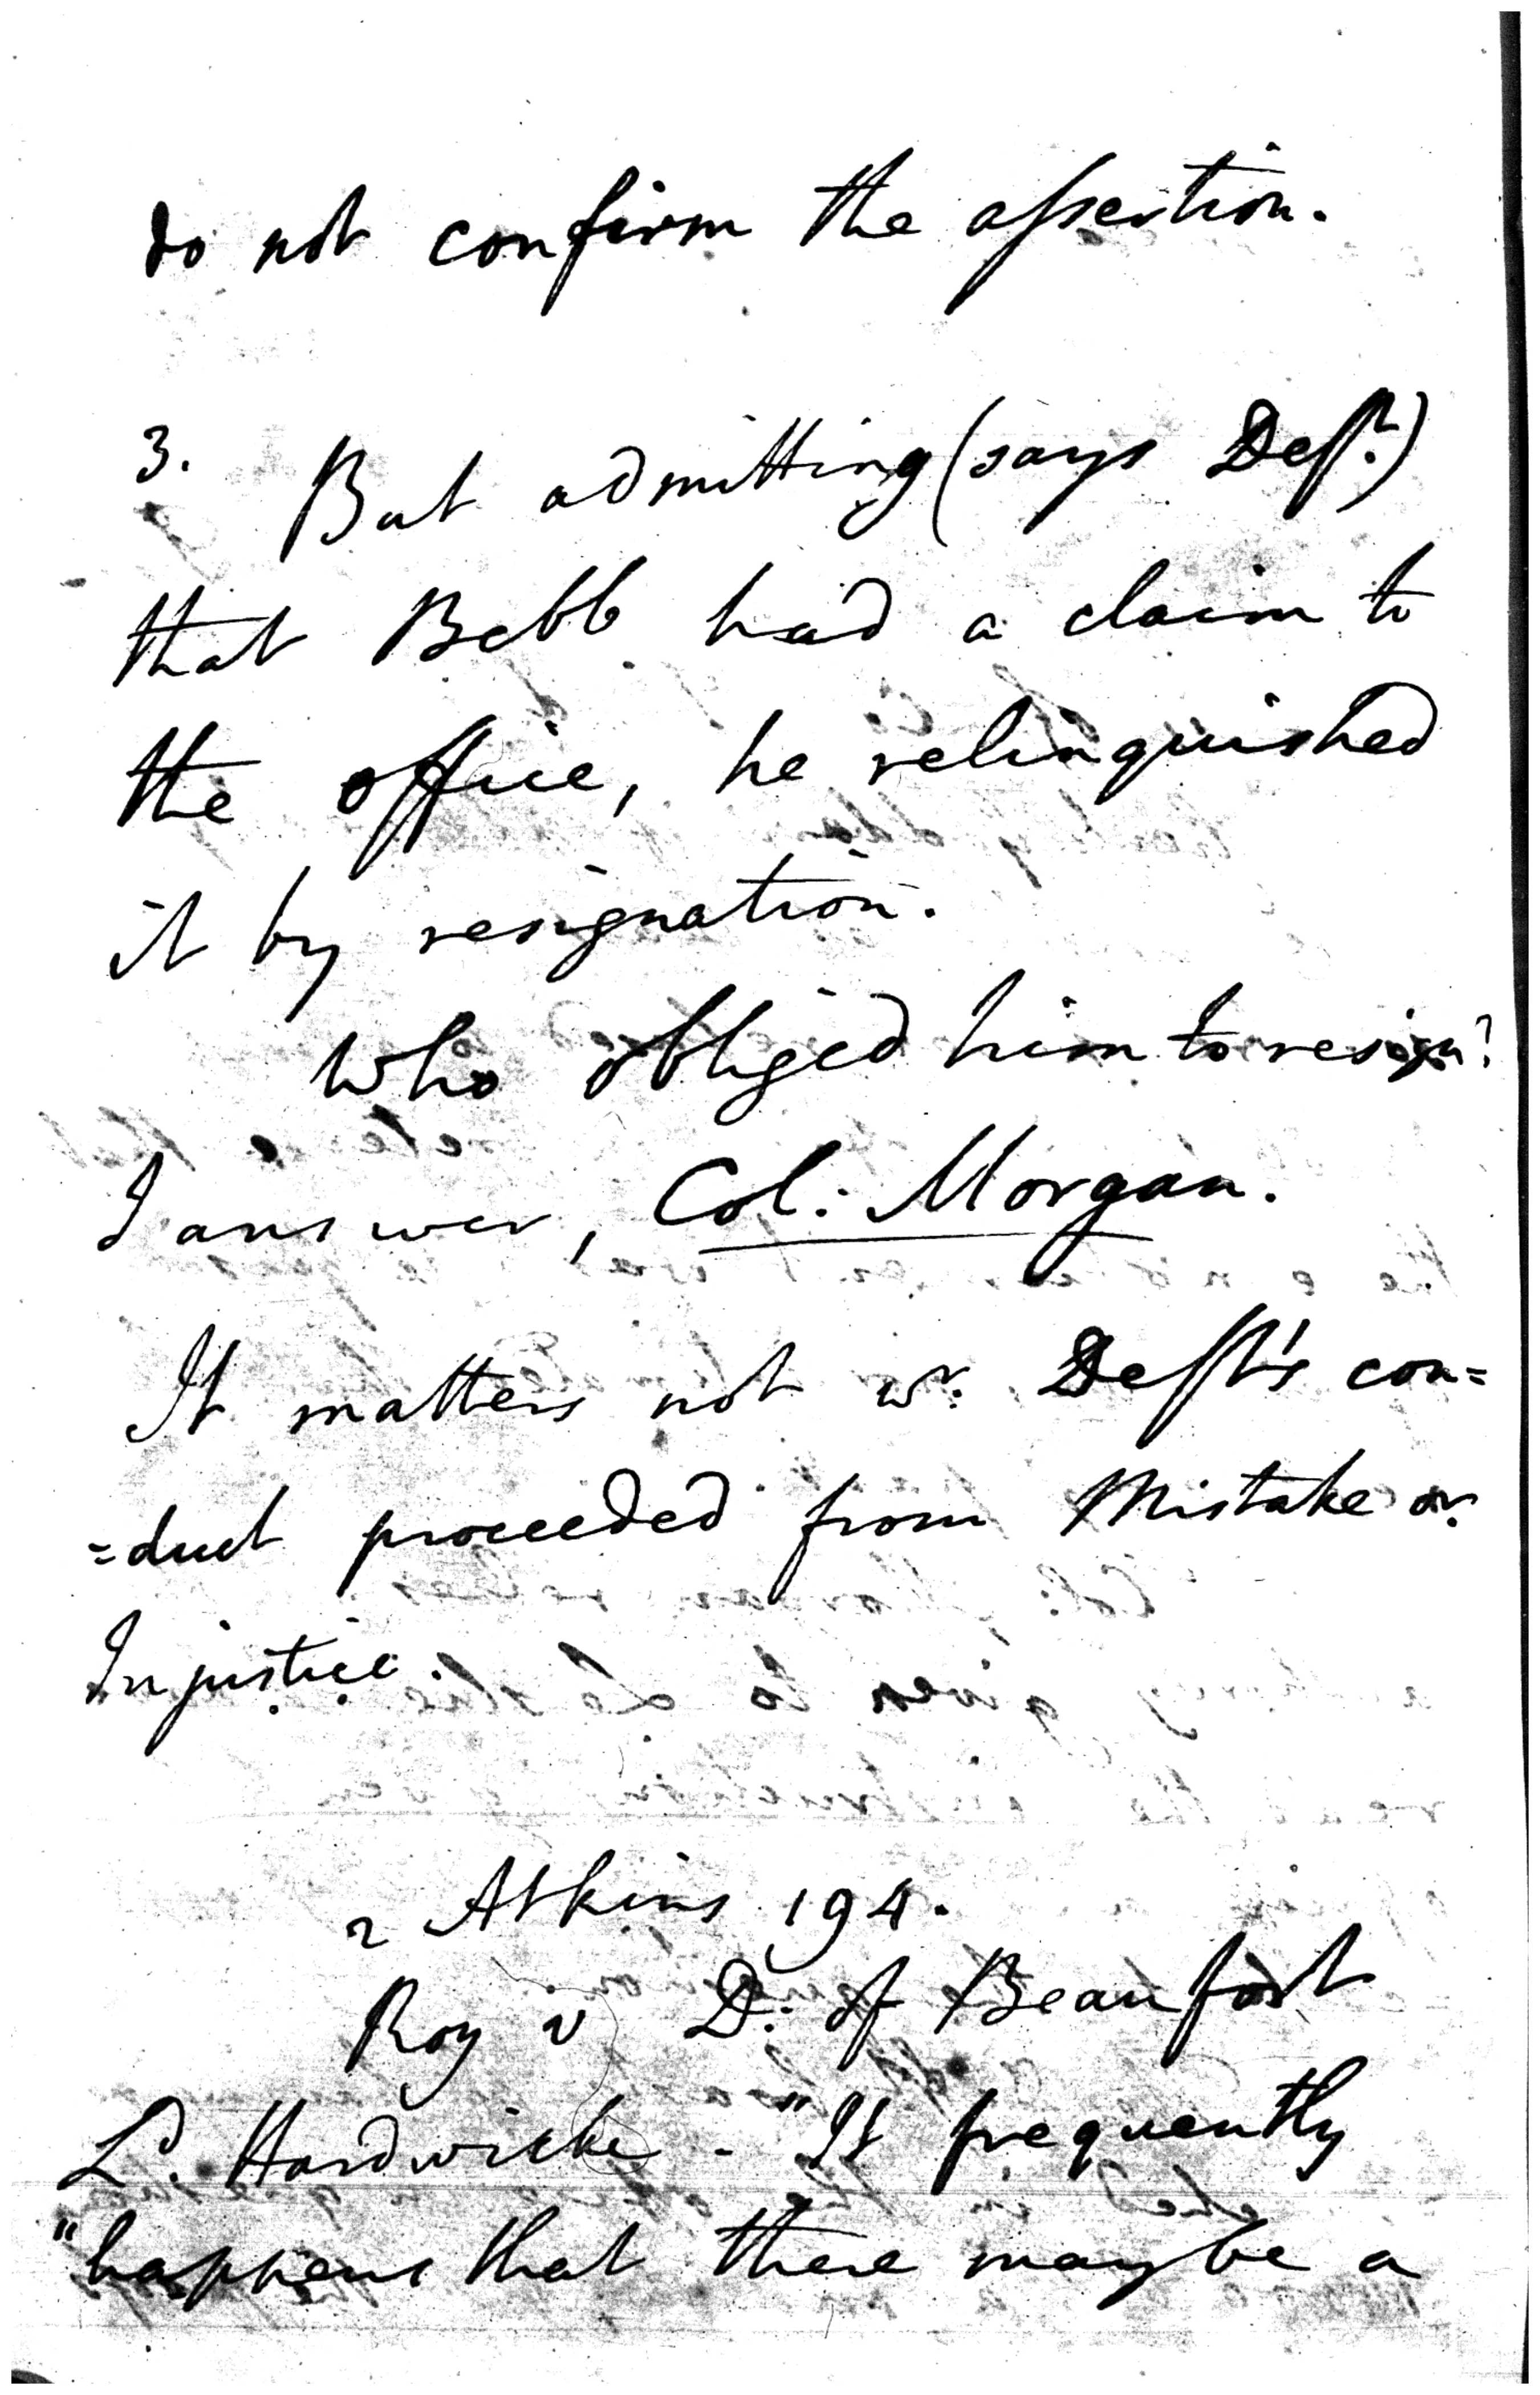 do not confirm the assertion.
3. But admitting (says Deft.)
that Bebb had a claim to
the office, he relinquished
it by resignation.
Who obliged him to resign?
I answer, Col: Morgan.
It matters not wr. Deft's con=
=duct proceeded from Mistake or
Injustice.
2 Atkins 194.
Roy v D: of Beaufort
Ld. Hardwicke - "It frequently
"happens that there may be a